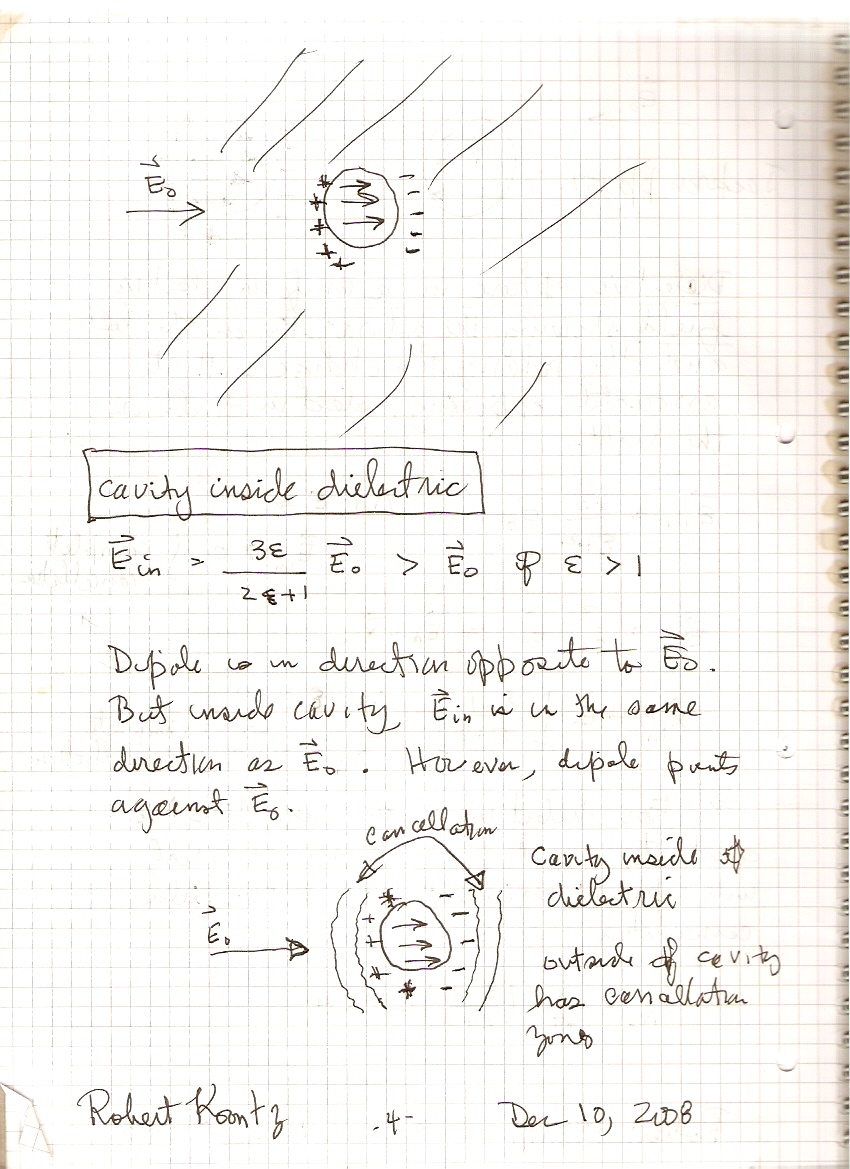 E⃗₀
+ + + + +
- - - - -
cavity inside dielectric
E⃗in = 3ε / 2ε+1 E⃗₀ > E⃗₀ if ε > 1
Dipole is in direction opposite to E⃗₀.
But inside cavity, E⃗in is in the same
direction as E⃗₀. However, dipole points
against E⃗₀.
cancellation
E⃗₀
+ + + + +
- - - - -
cavity inside of
dielectric
outside of cavity
has cancellation
zones
Robert Koontz -4- Dec 10, 2008